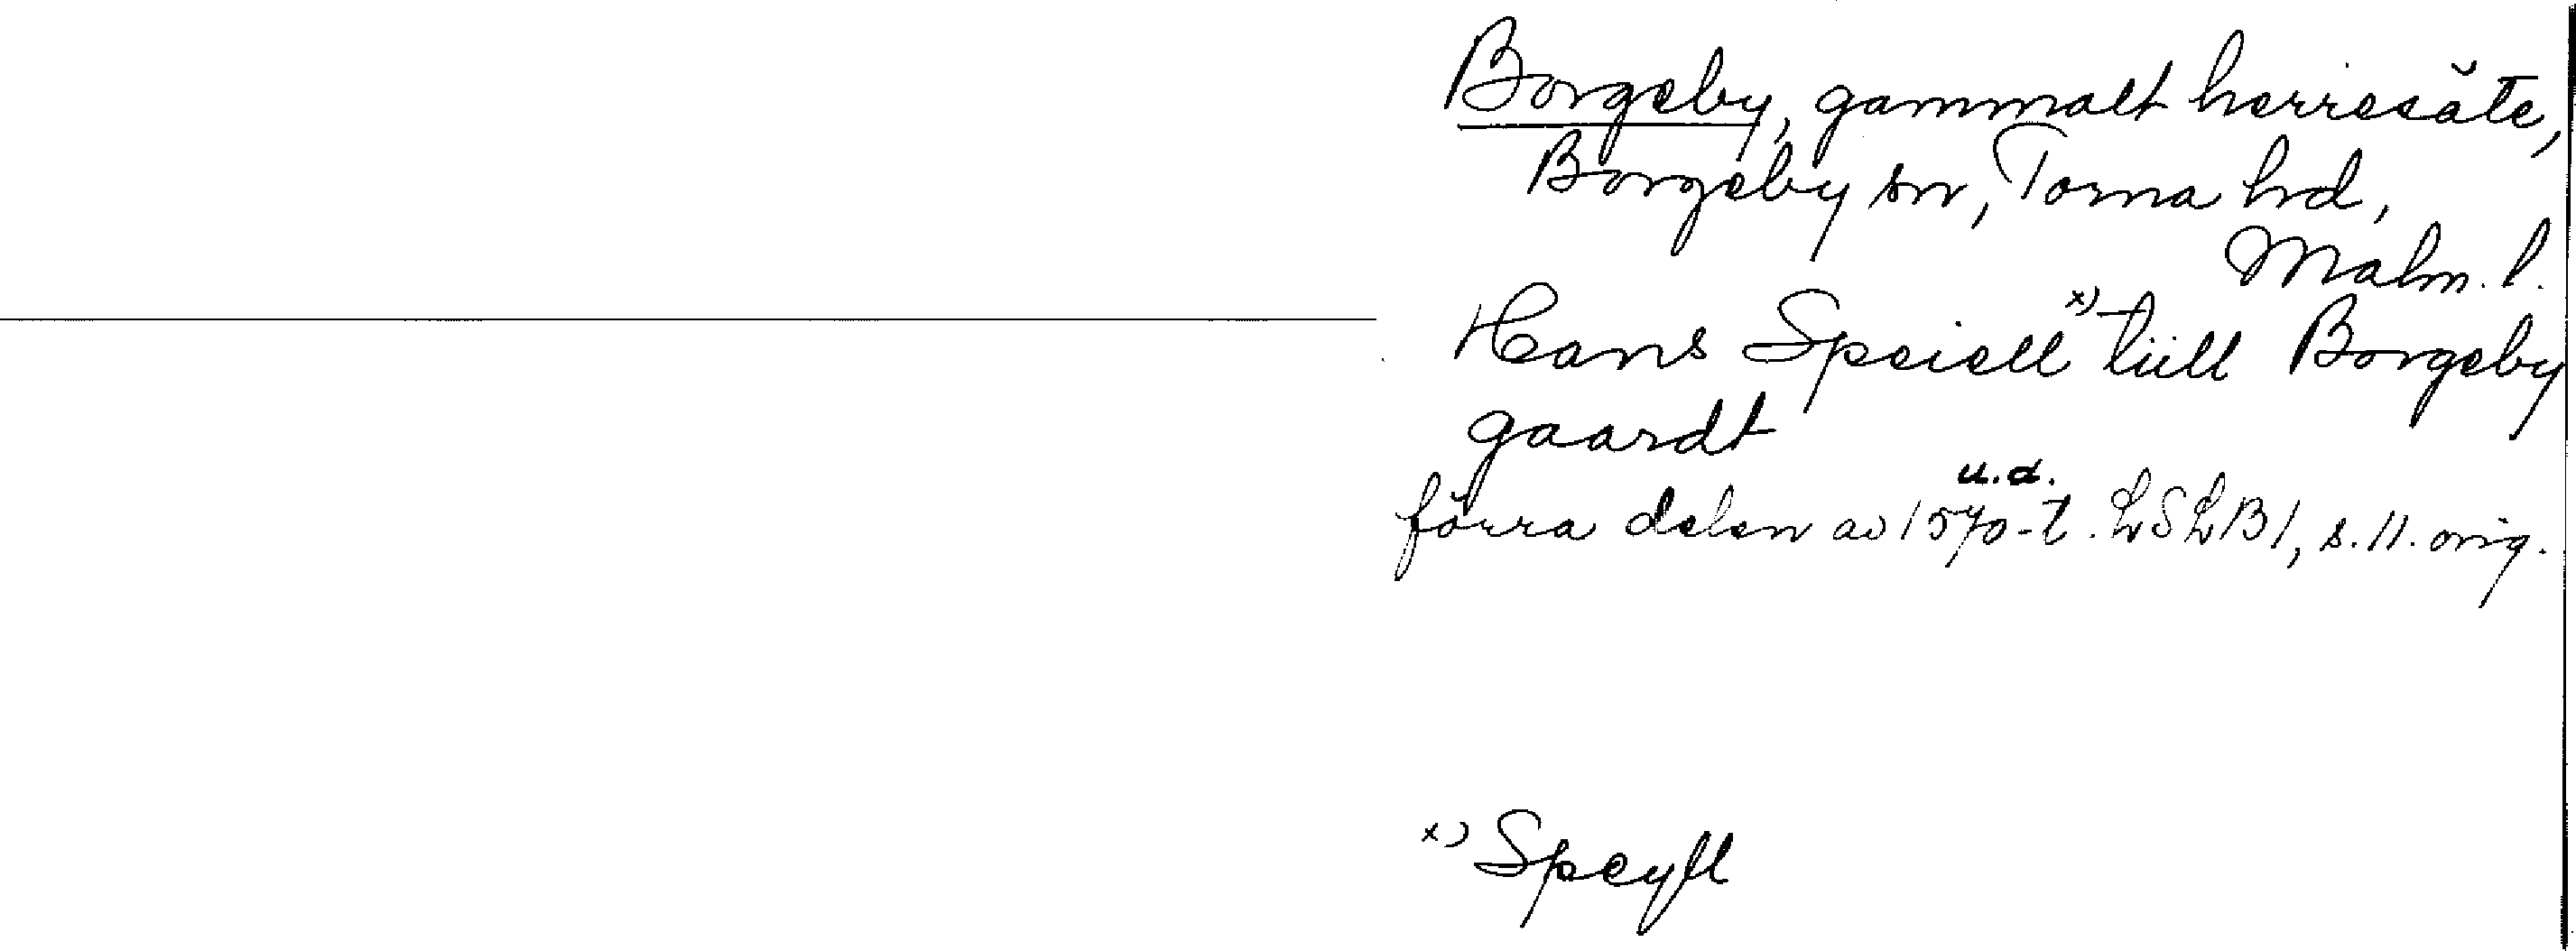 Borgeby, gammalt herresäte,
Borgeby sn, Torna hd,
Malm. l.
Hans Speiell x) tiill Borgeby
gaardt
u.d.
förra delen av 1570-t. LSLB1, s. 11. orig.
x) Speyll